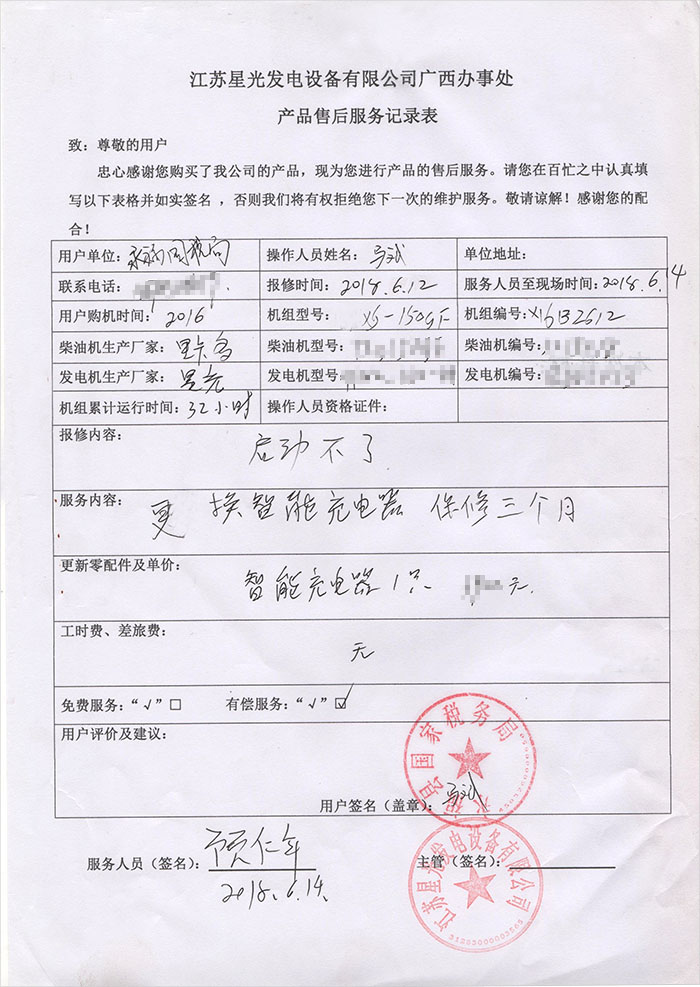 江苏星光发电设备有限公司广西办事处
产品售后服务记录表
致：尊敬的用户
忠心感谢您购买了我公司的产品，现为您进行产品的售后服务。请您在百忙之中认真填
写以下表格并如实签名，否则我们将有权拒绝您下一次的维护服务。敬请谅解！感谢您的配
合！
用户单位：永福国税局 操作人员姓名： 单位地址：
联系电话： 报修时间：2018.6.12 服务人员至现场时间：2018.6.14
用户购机时间：2016 机组型号：XG-150GF 机组编号：
柴油机生产厂家：里卡多 柴油机型号： 柴油机编号：
发电机生产厂家：星光 发电机型号： 发电机编号：
机组累计运行时间：32小时 操作人员资格证件：
报修内容：
启动不了
服务内容：
更换智能充电器 保修三个月
更新零配件及单价：
智能充电器1只 元.
工时费、差旅费：
无
免费服务：“√”□ 有偿服务：“√”☑
用户评价及建议：
县国家税务局
用户签名（盖章）：
服务人员（签名）：贾仁年 主管（签名）：
2018.6.14.
江苏星光发电设备有限公司